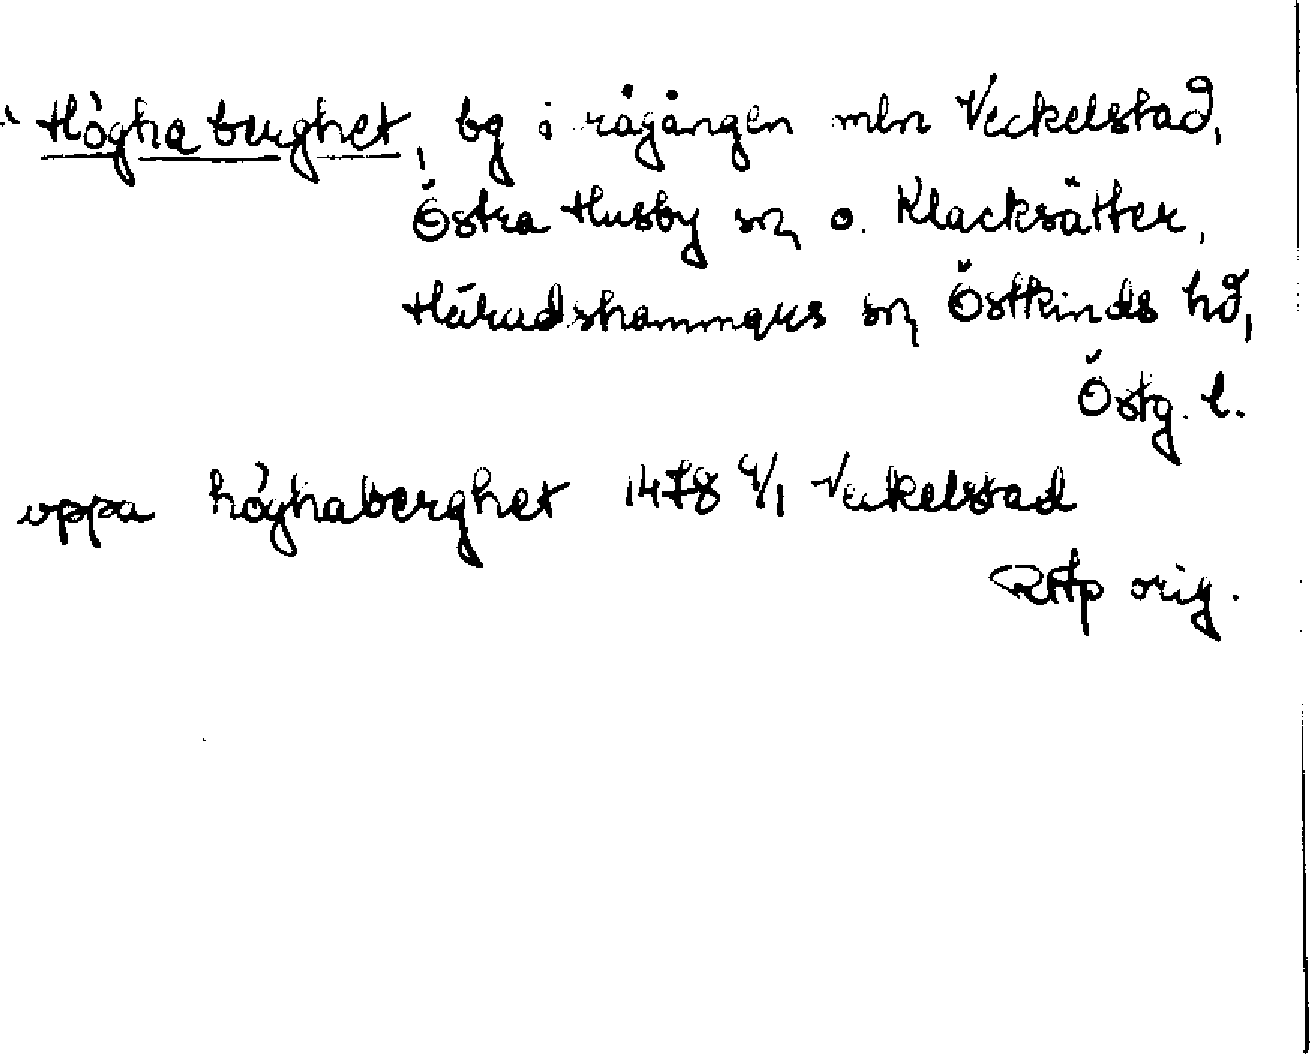 Högha berghet, bg i rågången mln Veckelstad,
Östra Husby sn o. Klacksätter,
Häradshammars sn Östkinds hd,
Östg. l.
uppa höghaberghet 1478 4/1 Veckelstad
RAp orig.